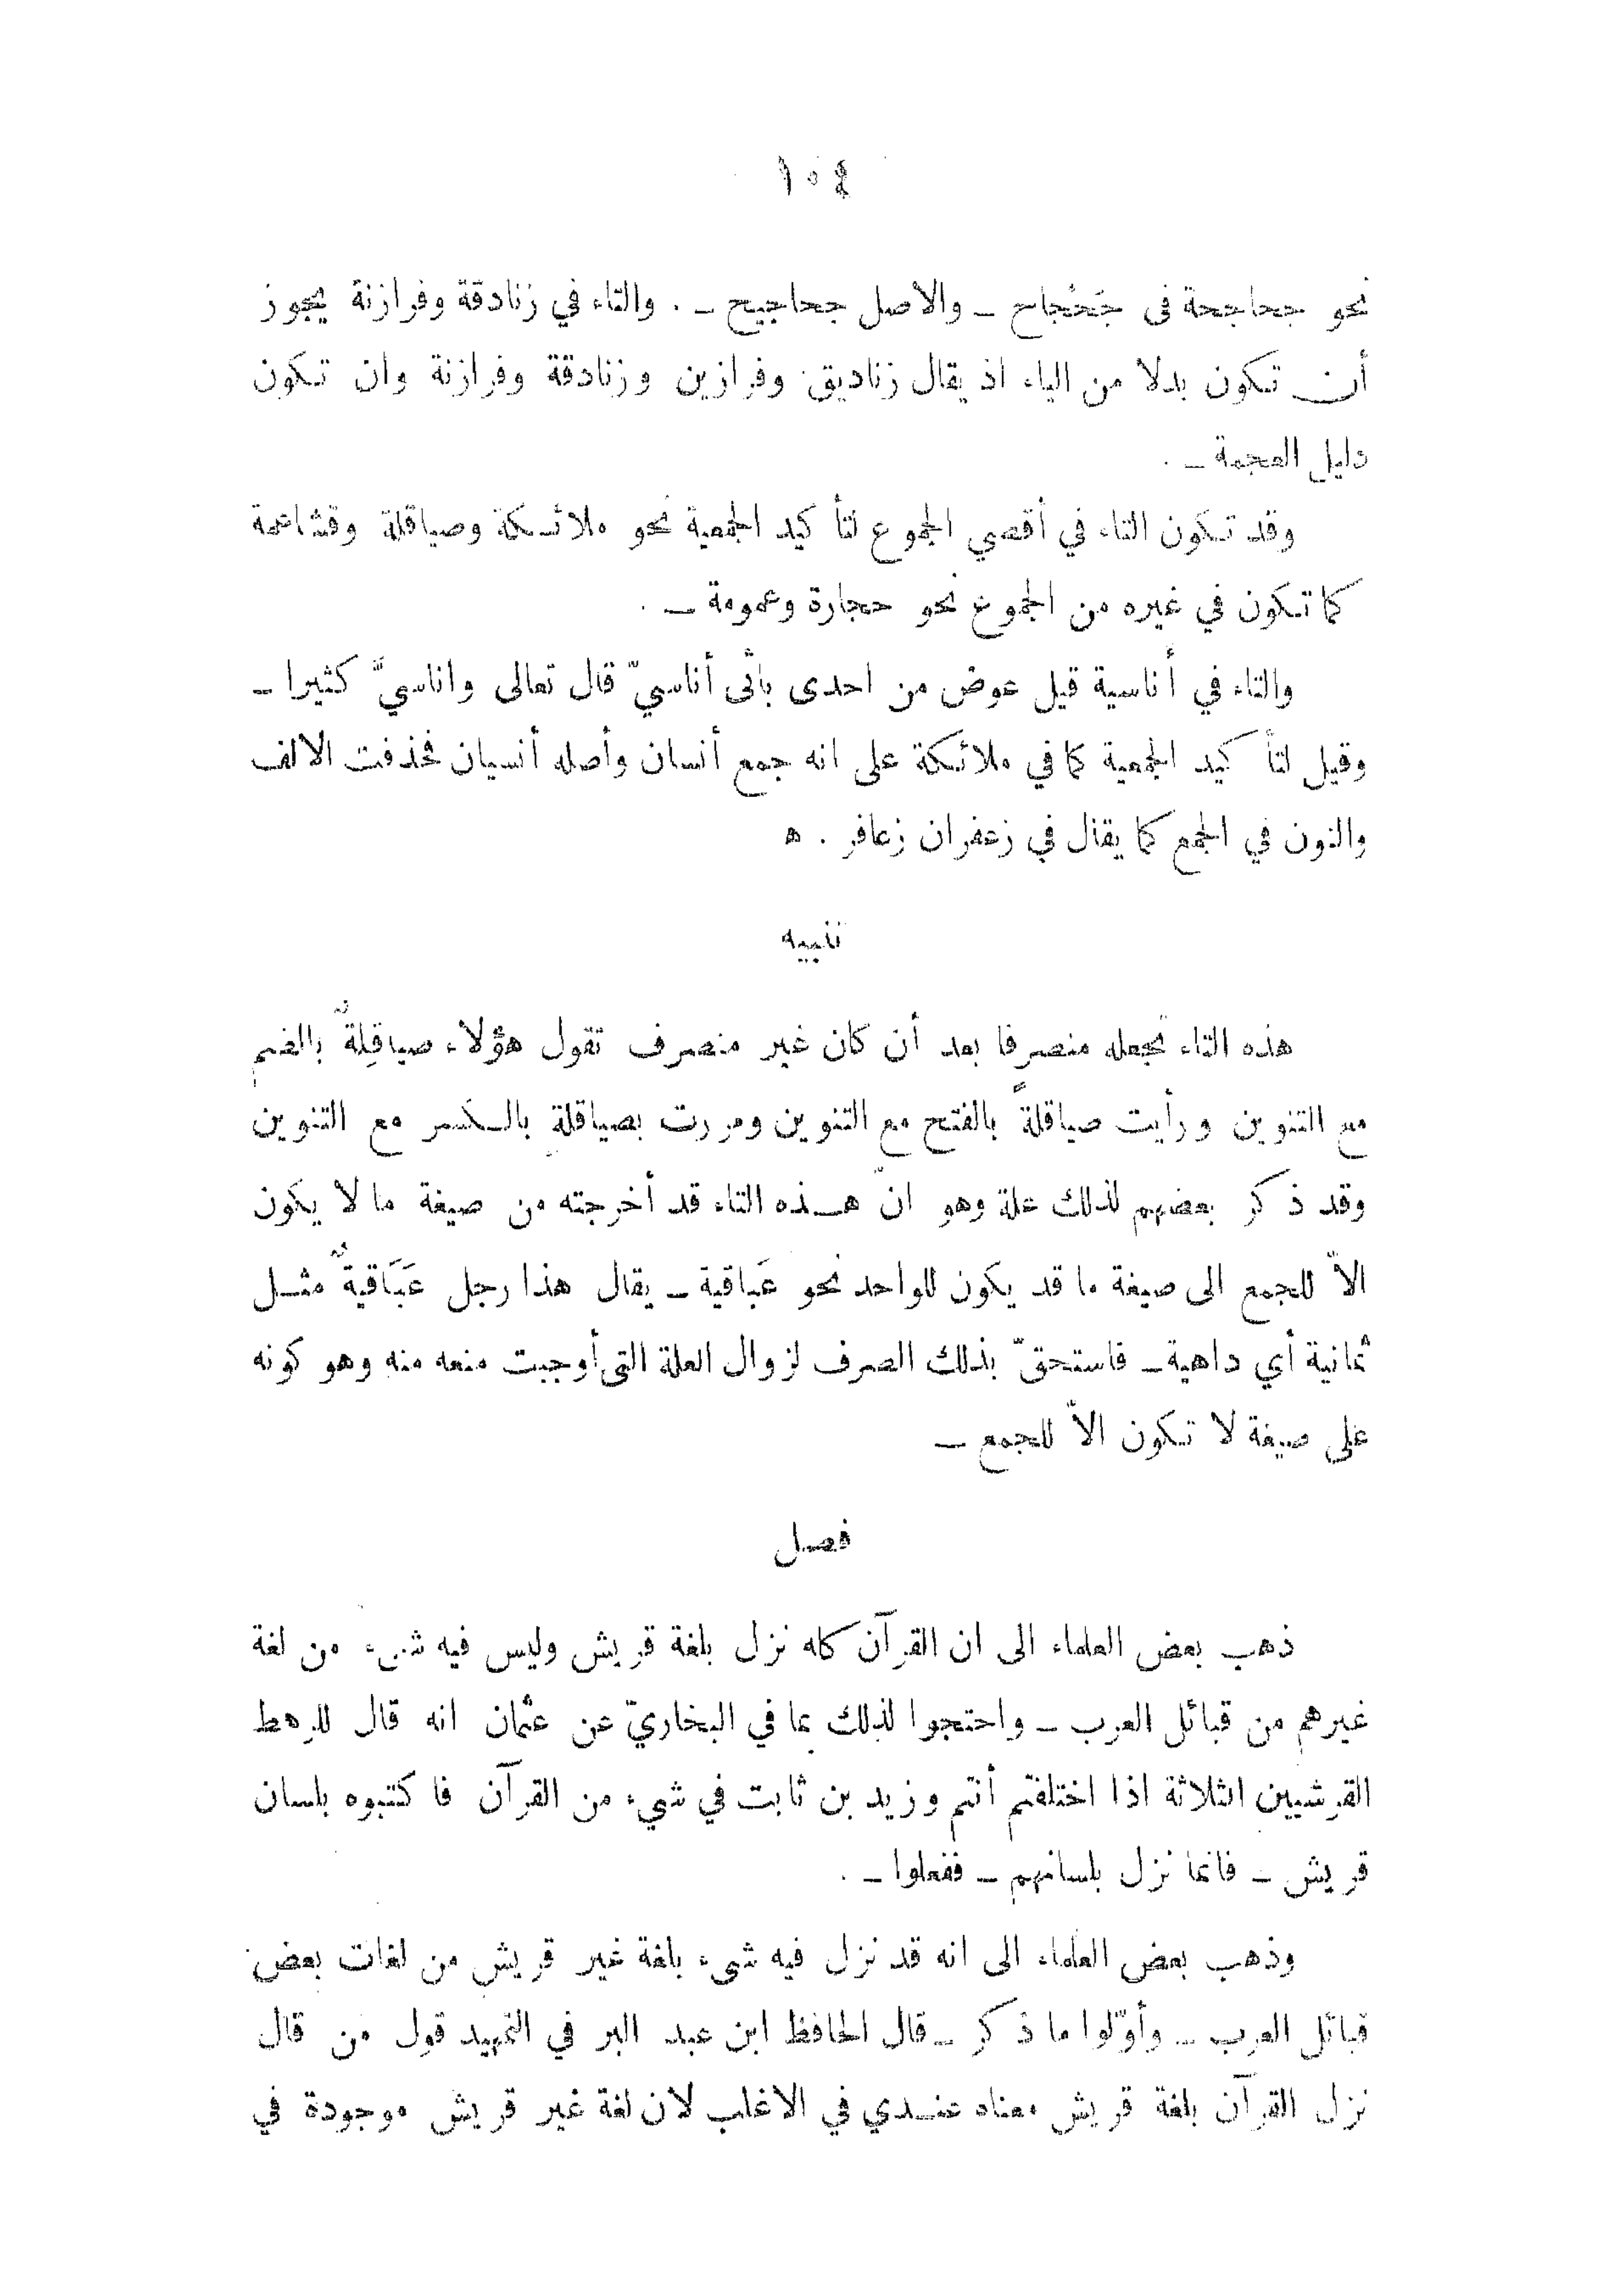 ١٠٤
نحو جحاجحة فى جَحْجاح ــ والاصل جحاجيح ــ . والتاء في زنادقة وفرازنة يجوز
أن تكون بدلا من الياء اذ يقال زناديق وفرازين وزنادقة وفرازنة وان تكون
دليل العجمة ــ .
وقد تكون التاء في أقصي الجموع لتأكيد الجمعية نحو ملائكة وصياقلة وقشاعمة
كما تكون في غيره من الجموع نحو حجارة وعمومة ــ .
والتاء في أناسية قيل عوض من احدى يائى أناسيّ قال تعالى واناسيَّ كثيرا ــ
وقيل لتأكيد الجمعية كما في ملائكة على انه جمع أنسان وأصله أنسيان فحذفت الالف
والنون في الجمع كما يقال في زعفران زعافر . ه
تنبيه
هذه التاء تجعله منصرفا بعد أن كان غير منصرف تقول هؤلاء صياقِلةٌ بالضم
مع التنوين ورأيت صياقلةً بالفتح مع التنوين ومررت بصياقلة بالكسر مع التنوين
وقد ذكر بعضهم لذلك علة وهو انّ هـذه التاء قد أخرجته من صيغة ما لا يكون
الاّ للجمع الى صيغة ما قد يكون للواحد نحو عَباقية ــ يقال هذا رجل عَبَاقيةٌ مثـل
ثمانية أي داهية ــ فاستحقّ بذلك الصرف لزوال العلة التى أوجبت منعه منه وهو كونه
على صيغة لا تكون الاّ للجمع ــ
فصل
ذهب بعض العلماء الى ان القرآن كله نزل بلغة قريش وليس فيه شىء من لغة
غيرهم من قبائل العرب ــ واحتجوا لذلك بما في البخاريّ عن عثمان انه قال للرهط
القرشيين الثلاثة اذا اختلفتم أنتم وزيد بن ثابت في شيء من القرآن فاكتبوه بلسان
قريش ــ فانما نزل بلسانهم ــ ففعلوا ــ .
وذهب بعض العلماء الى انه قد نزل فيه شىء بلغة غير قريش من لغات بعض
قبائل العرب ــ وأوّلوا ما ذكر ــ قال الحافظ ابن عبد البر في التمهيد قول من قال
نزل القرآن بلغة قريش معناه عنـدي في الاغلب لان لغة غير قريش موجودة في